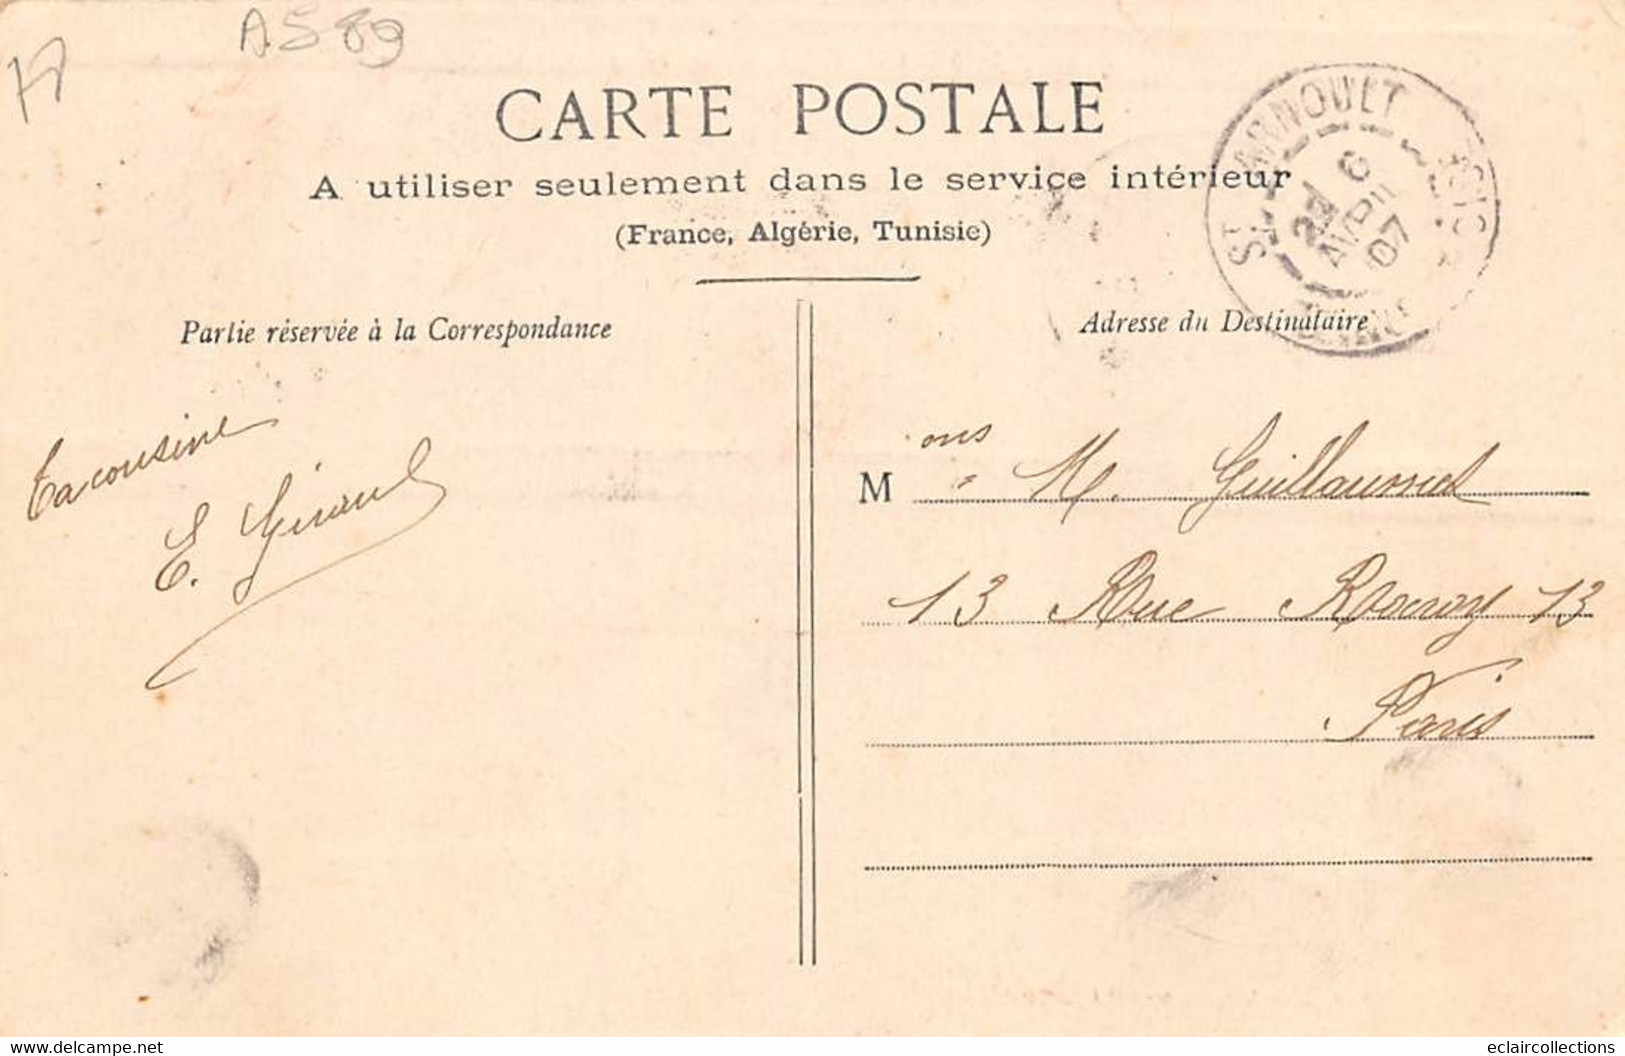 A589
CARTE POSTALE
A utiliser seulement dans le service intérieur
(France, Algérie, Tunisie)
ST ARNOULT
6
AVRIL
07
Partie réservée à la Correspondance
Adresse du Destinataire
Ta cousine
E. Girault
M ons M. Guillaumet
13 Rue Rocroy 13
Paris
www.delcampe.net
eclaircollections